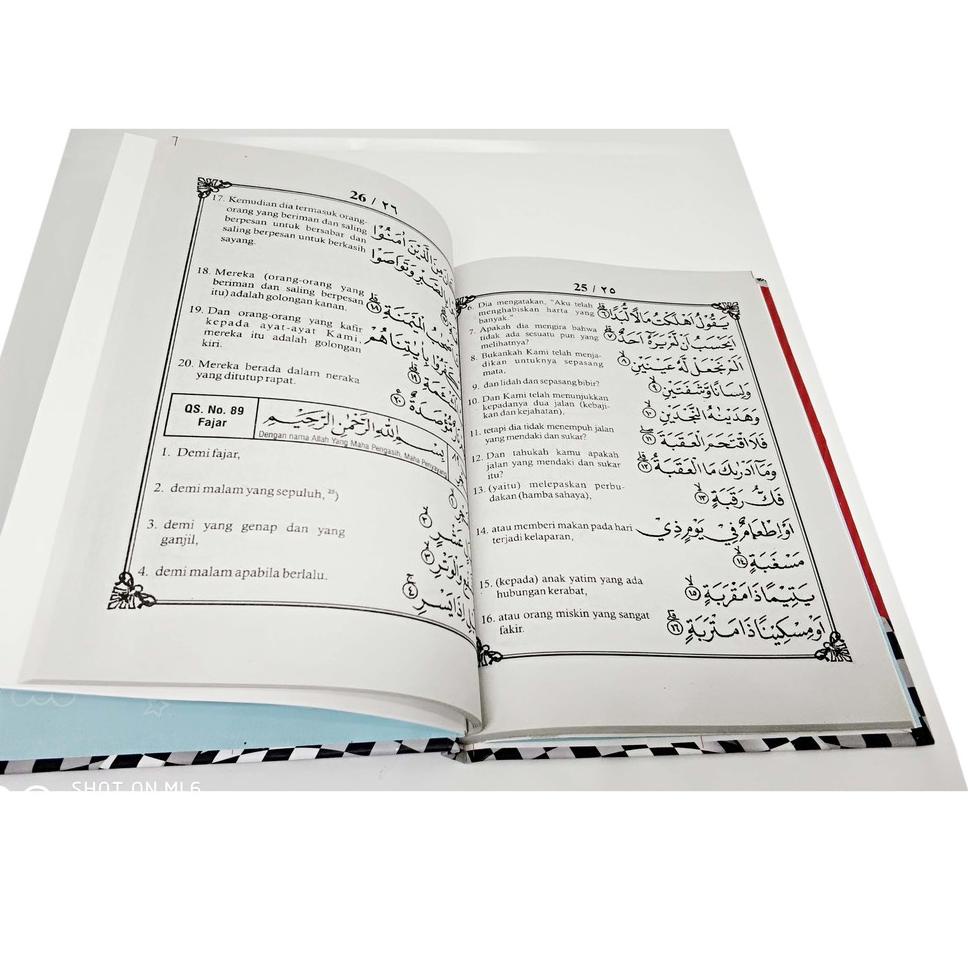 25 / ٢٥
Dia mengatakan, "Aku telah
menghabiskan harta yang
banyak."
يَقُوْلُ اَهْلَكْتُ مَالًا لُّبَدًا ٦
7. Apakah dia mengira bahwa
tidak ada sesuatu pun yang
melihatnya?
اَيَحْسَبُ اَنْ لَّمْ يَرَهٗٓ اَحَدٌ ٧
8. Bukankah Kami telah menja-
dikan untuknya sepasang
mata,
اَلَمْ نَجْعَلْ لَّهٗ عَيْنَيْنِ ٨
9. dan lidah dan sepasang bibir?
وَلِسَانًا وَّشَفَتَيْنِ ٩
10. Dan Kami telah menunjukkan
kepadanya dua jalan (kebaji-
kan dan kejahatan).
وَهَدَيْنٰهُ النَّجْدَيْنِ ١٠
11. tetapi dia tidak menempuh jalan
yang mendaki dan sukar?
فَلَا اقْتَحَمَ الْعَقَبَةَ ١١
12. Dan tahukah kamu apakah
jalan yang mendaki dan sukar
itu?
وَمَآ اَدْرٰىكَ مَا الْعَقَبَةُ ١٢
13. (yaitu) melepaskan perbu-
dakan (hamba sahaya),
فَكُّ رَقَبَةٍ ١٣
14. atau memberi makan pada hari
terjadi kelaparan,
اَوْ اِطْعَامٌ فِيْ يَوْمٍ ذِيْ
مَسْغَبَةٍ ١٤
15. (kepada) anak yatim yang ada
hubungan kerabat,
يَّتِيْمًا ذَا مَقْرَبَةٍ ١٥
16. atau orang miskin yang sangat
fakir.
اَوْ مِسْكِيْنًا ذَا مَتْرَبَةٍ ١٦
26 / ٢٦
17. Kemudian dia termasuk orang-
orang yang beriman dan saling
berpesan untuk bersabar dan
saling berpesan untuk berkasih
sayang.
مِنَ الَّذِيْنَ اٰمَنُوْا
وَتَوَاصَوْا
18. Mereka (orang-orang yang
beriman dan saling berpesan
itu) adalah golongan kanan.
الْمَيْمَنَةِ ١٨
19. Dan orang-orang yang kafir
kepada ayat-ayat Kami,
mereka itu adalah golongan
kiri.
بِاٰيٰتِنَا هُمْ
١٩
20. Mereka berada dalam neraka
yang ditutup rapat.
مُّؤْصَدَةٌ ٢٠
QS. No. 89
Fajar
بِسْمِ اللّٰهِ الرَّحْمٰنِ الرَّحِيْمِ
Dengan nama Allah Yang Maha Pengasih, Maha Penyayang
1. Demi fajar,
١
2. demi malam yang sepuluh, ²⁵)
عَشْرٍ ٢
3. demi yang genap dan yang
ganjil,
وَالْوَتْرِ ٣
4. demi malam apabila berlalu.
اِذَا يَسْرِ ٤
SHOT ON MI 6